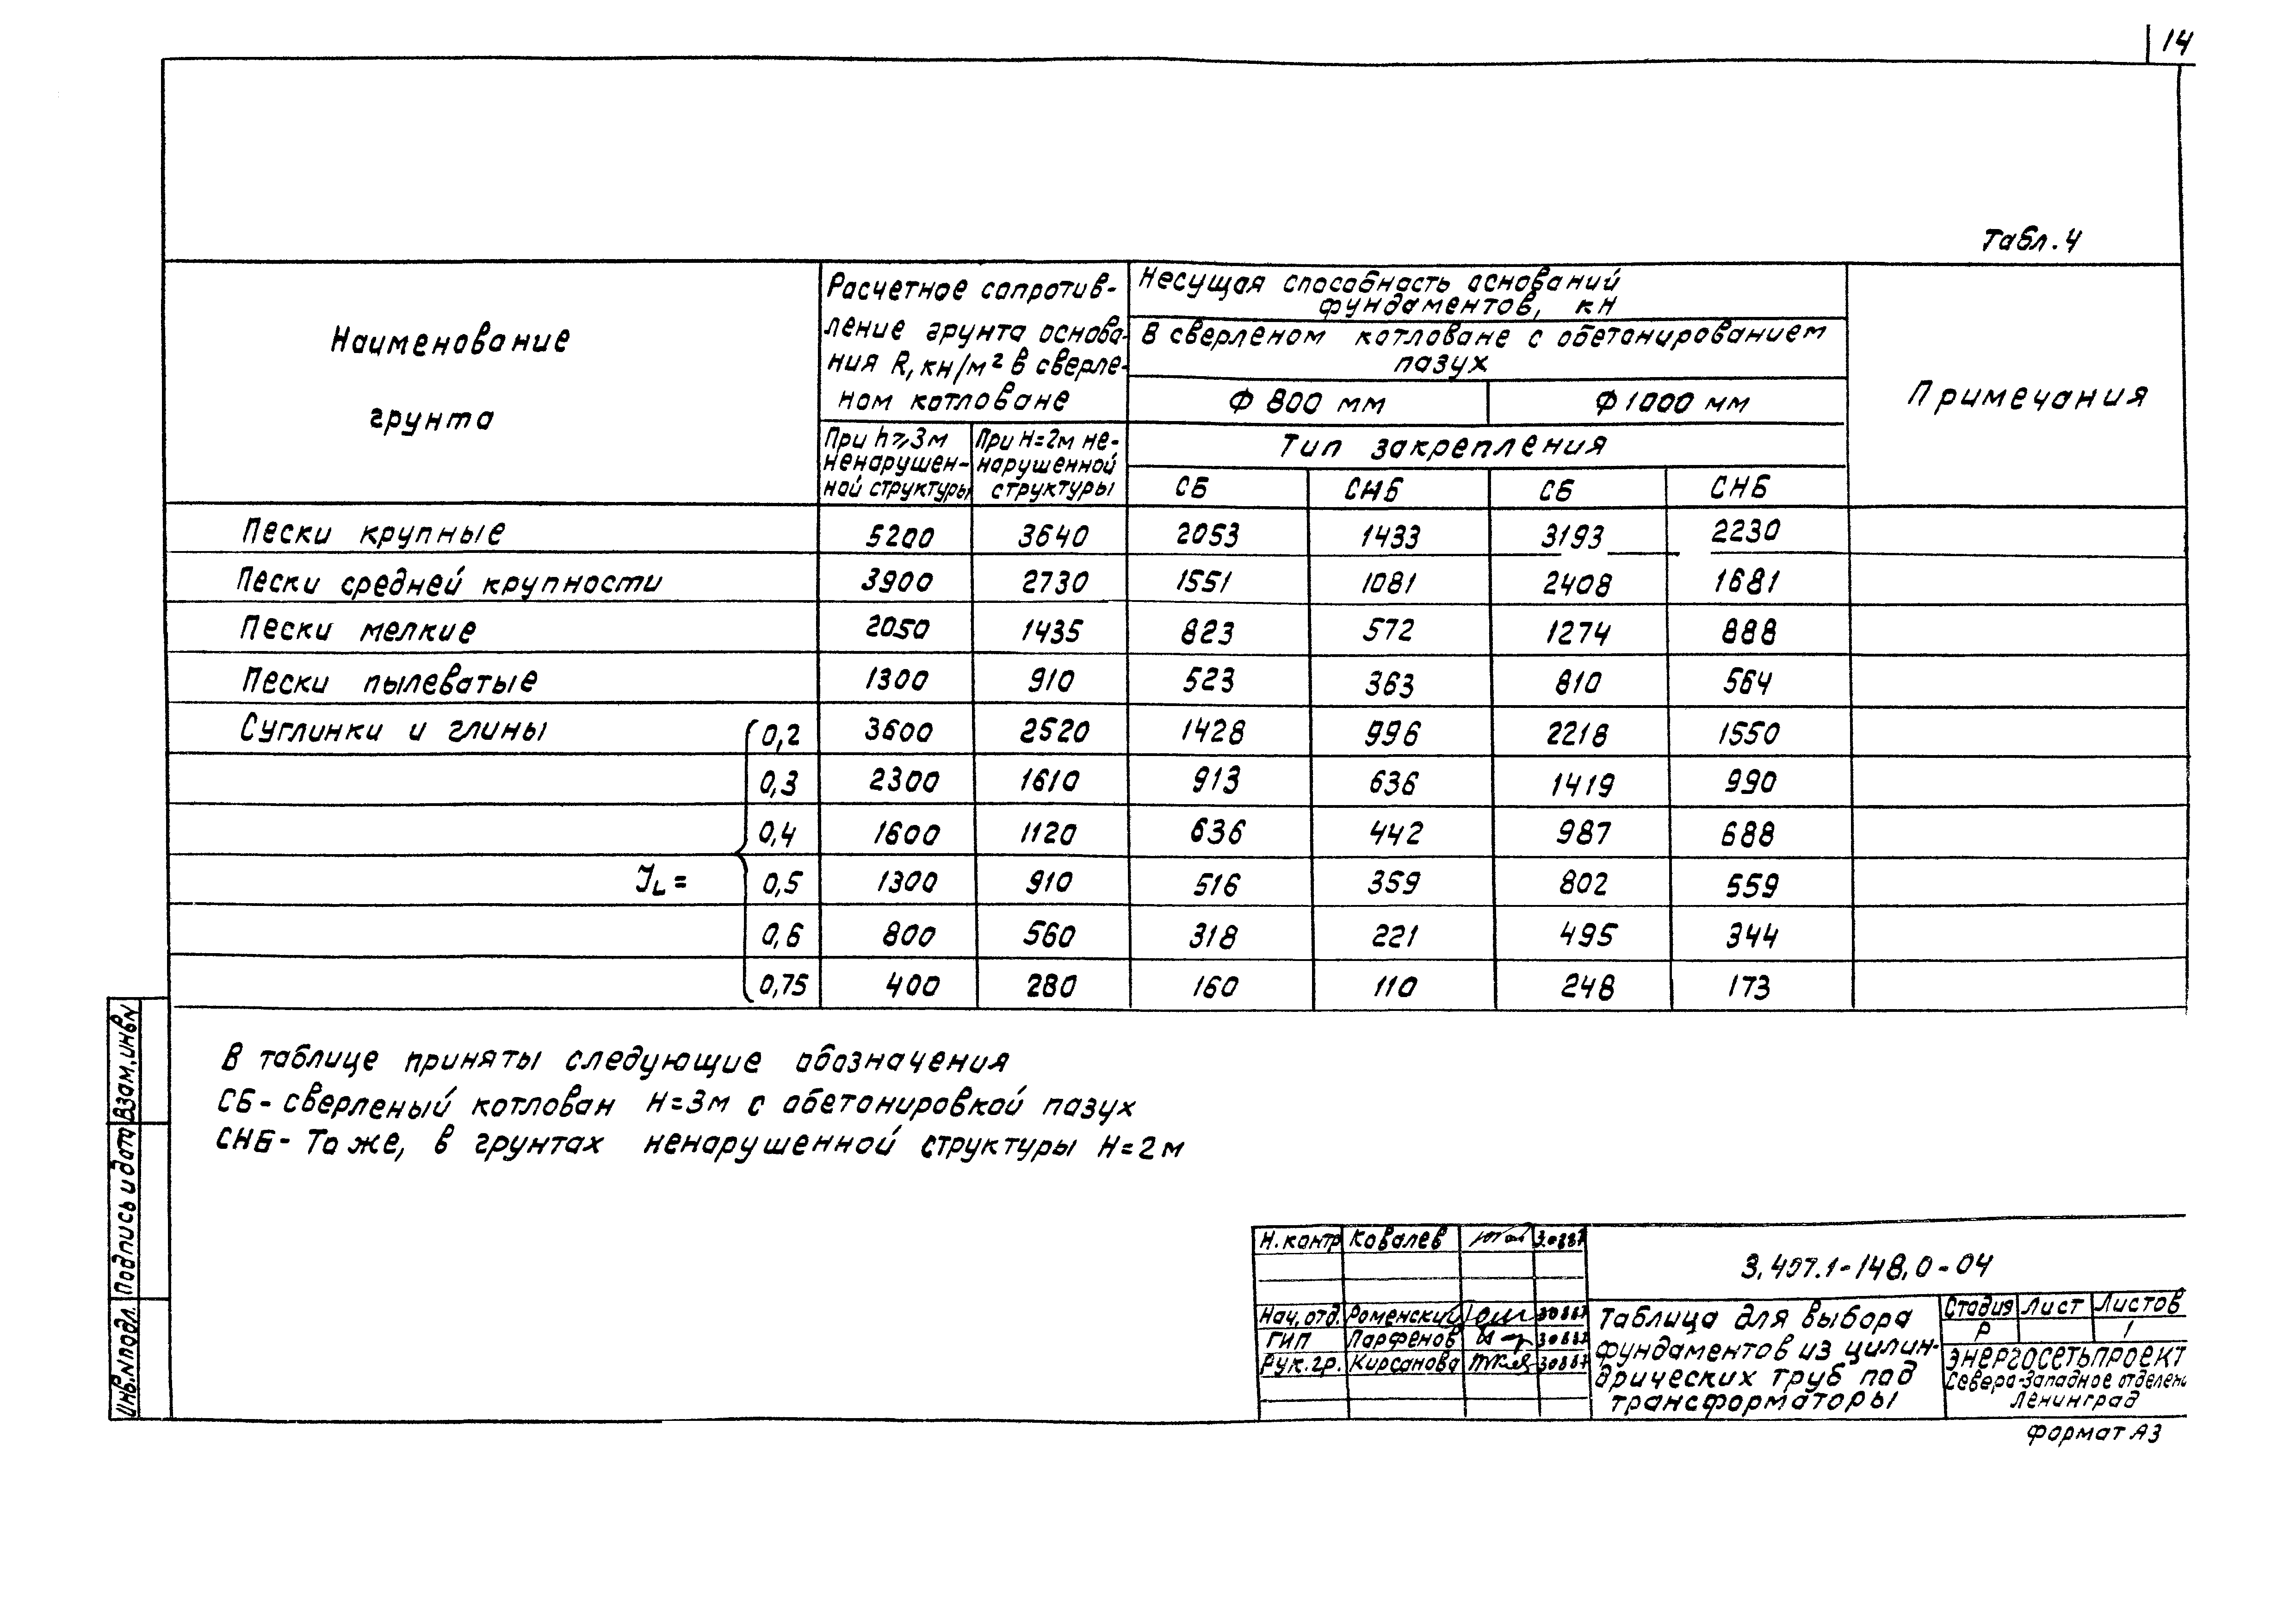 14
Табл. 4
Наименование
грунта
Расчетное сопротив-
ление грунта основа-
ния R, кН/м² в сверле-
ном котловане
При h⩾3м
ненарушен-
ной структуры
При H=2м не-
нарушенной
структуры
Несущая способность оснований
фундаментов, кН
В сверленом котловане с обетонированием
пазух
Ф 800 мм
Ф 1000 мм
Тип закрепления
СБ СНБ СБ СНБ
Примечания
Пески крупные 5200 3640 2053 1433 3193 2230
Пески средней крупности 3900 2730 1551 1081 2408 1681
Пески мелкие 2050 1435 823 572 1274 888
Пески пылеватые 1300 910 523 363 810 564
Суглинки и глины 0,2 3600 2520 1428 996 2218 1550
0,3 2300 1610 913 636 1419 990
0,4 1600 1120 636 442 987 688
JL = 0,5 1300 910 516 359 802 559
0,6 800 560 318 221 495 344
0,75 400 280 160 110 248 173
В таблице приняты следующие обозначения
СБ - сверленый котлован H=3м с обетонировкой пазух
СНБ - То же, в грунтах ненарушенной структуры H=2м
Взам.инв№
Подпись и дата
Инв.№подл.
Н.контр Ковалев
Нач.отд. Роменский
ГИП Парфенов
Рук.гр. Кирсанова
3.407.1-148.0-04
Таблица для выбора
фундаментов из цилин-
дрических труб под
трансформаторы
Стадия Лист Листов
Р 1
ЭНЕРГОСЕТЬПРОЕКТ
Северо-Западное отделен
Ленинград
Формат А3